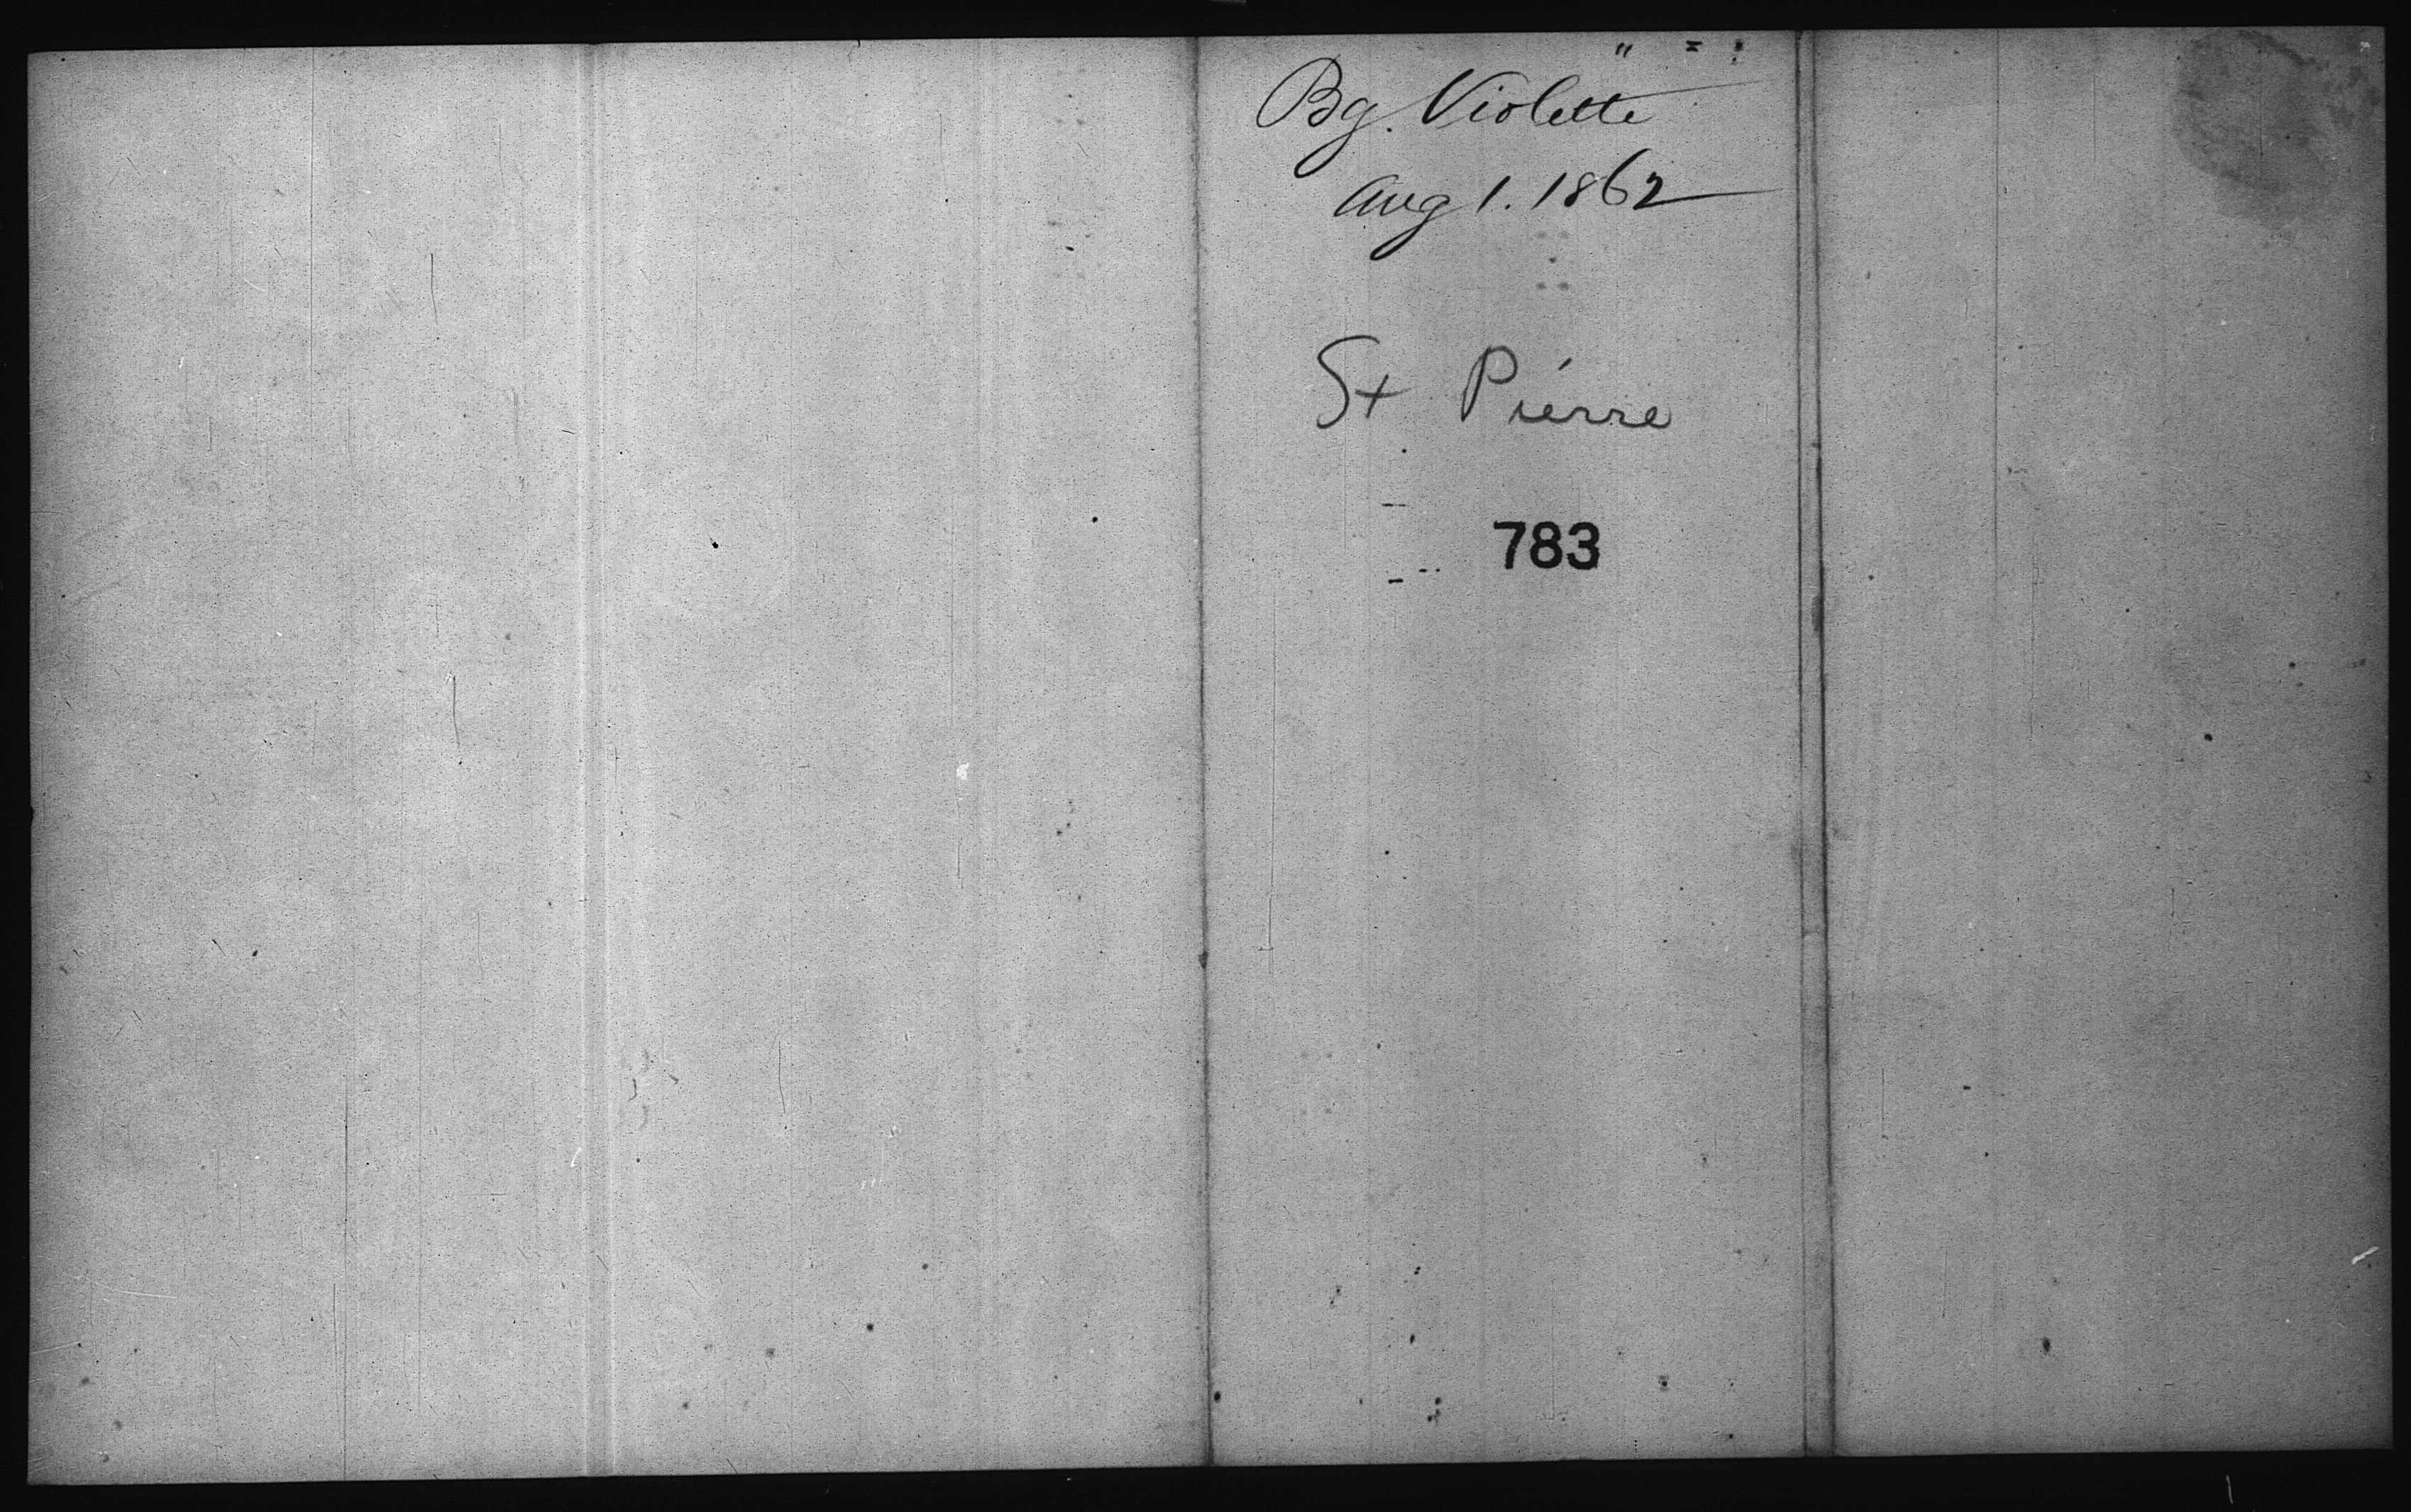 Bg. Violette
Aug 1. 1862
St Pierre
783